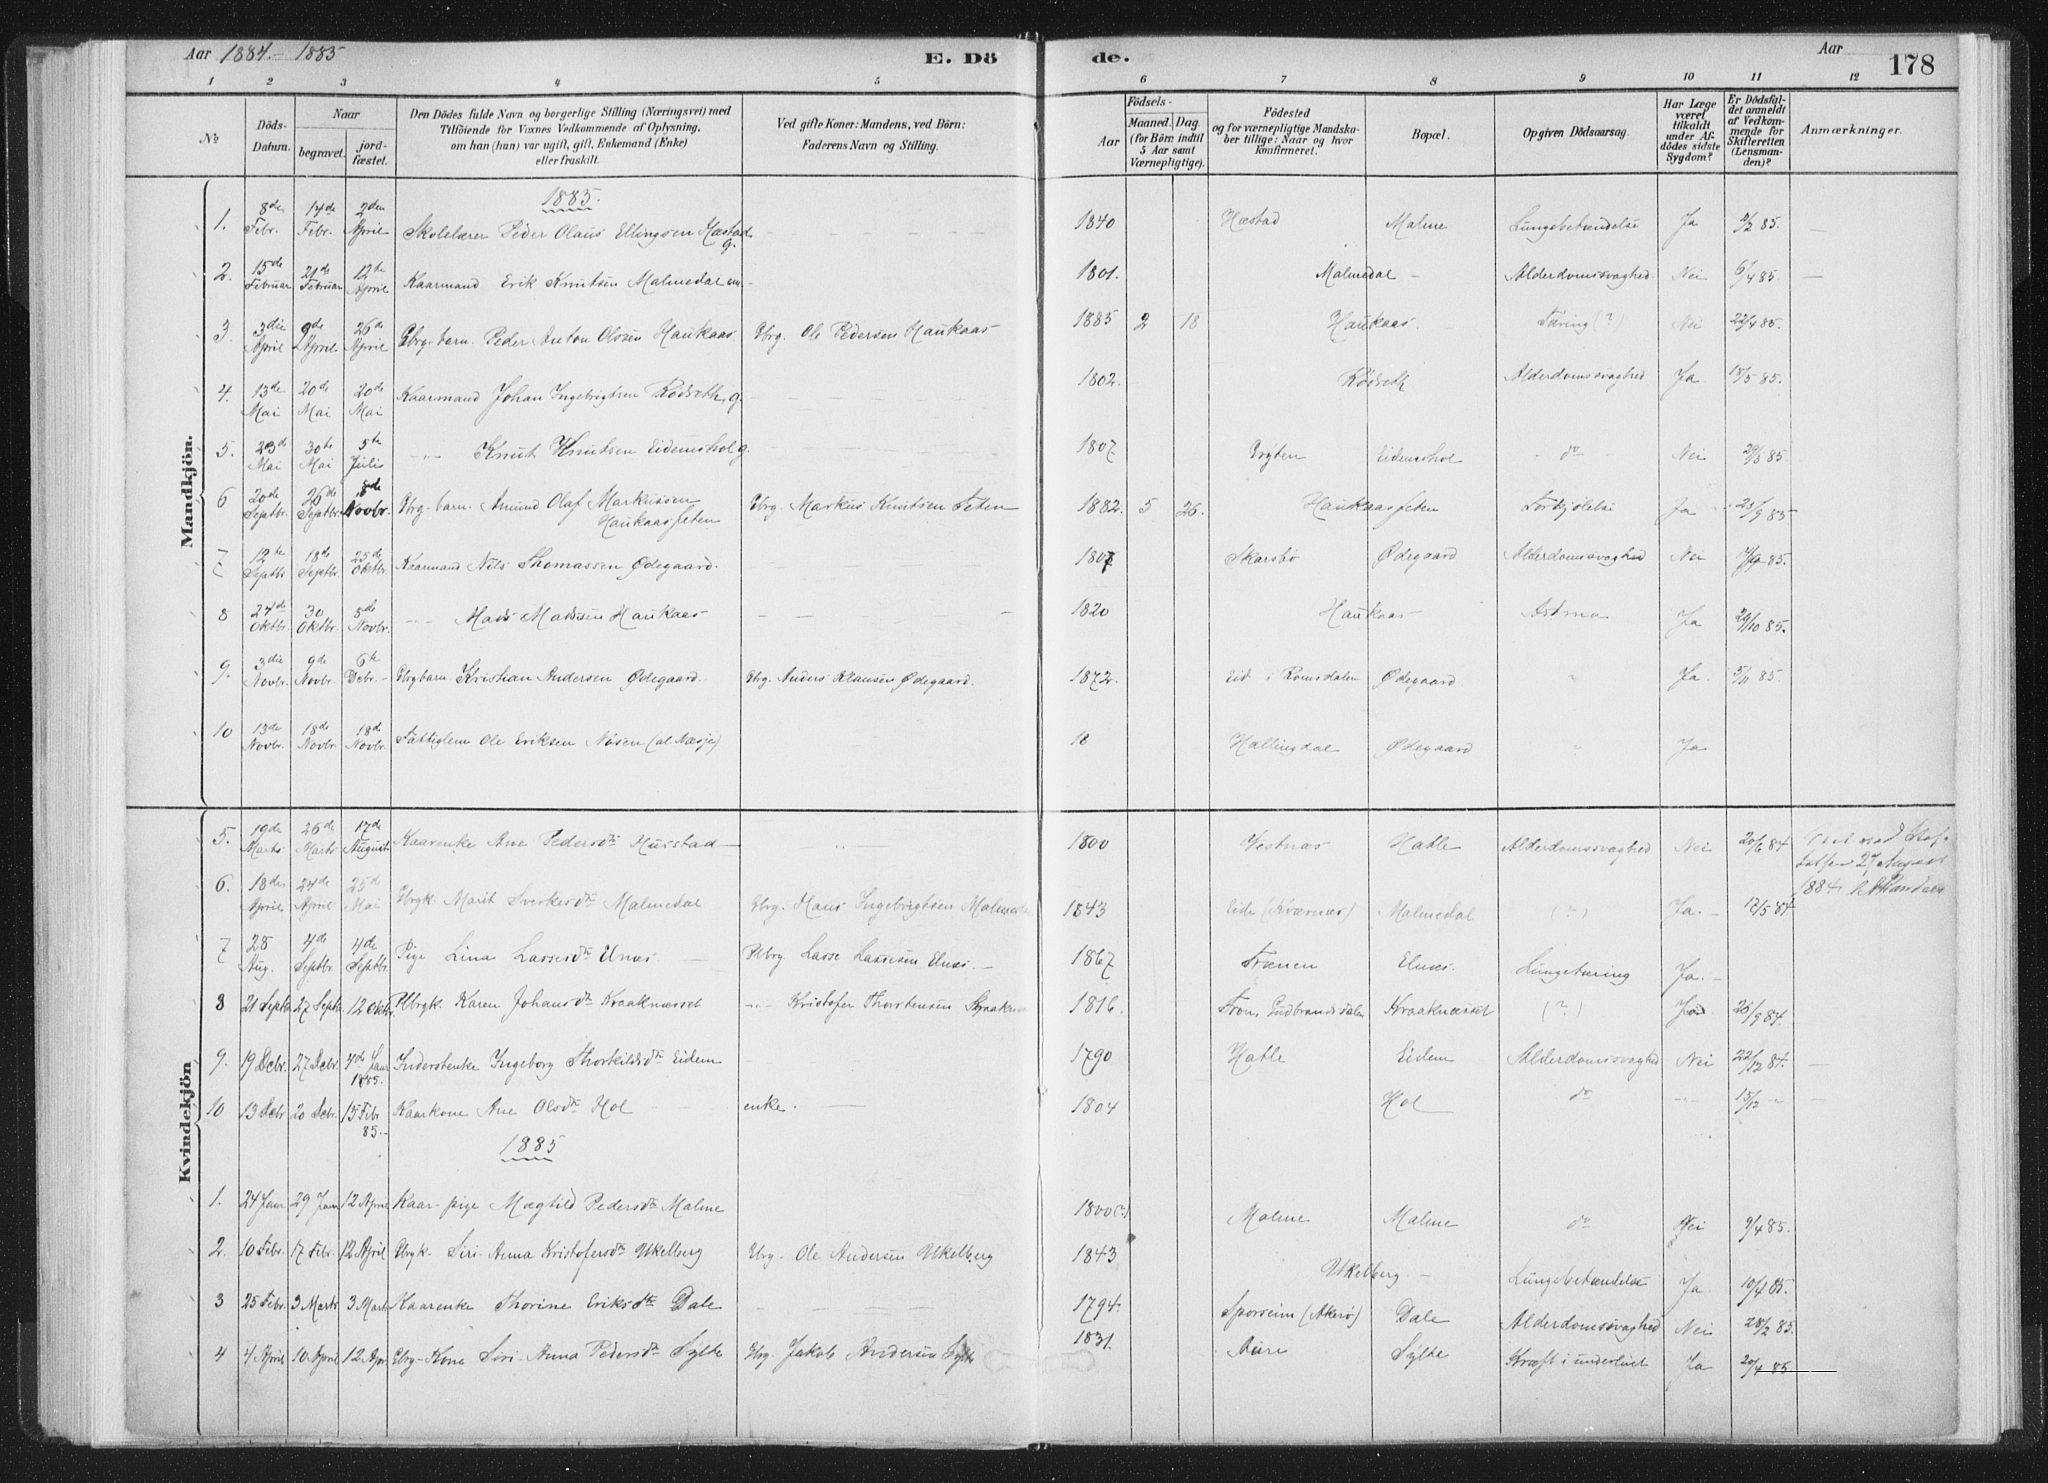 Aar 1884 - 1885 E. Dö de. Aar 178
1 2 3 4 5 6 7 8 9 10 11 12
No
Döds-Datum.
Naar
begravet.
jord-fæstet.
Den Dödes fulde Navn og borgerlige Stilling (Næringsvei) med
Tilföiende for Voxnes Vedkommende af Oplysning,
om han (hun) var ugift, gift, Enkemand (Enke)
eller fraskilt.
Ved gifte Koner: Mandens, ved Börn:
Faderens Navn og Stilling.
Födsels-
Aar
Maaned. Dag
(for Börn indtil
5 Aar samt
Værnepligtige).
Födested
og for værnepligtige Mandska-
ber tillige: Naar og hvor
konfirmeret.
Bopæl.
Opgiven Dödsaarsag.
Har Læge
været
tilkaldt
under Af-
dödes sidste
Sygdom?
Er Dödsfal-
det anmeldt
af Vedkom-
mende for
Skifteretten
(Lensman-
den)?
Anmærkninger.
Mandkjön.
1885.
1. 8de Febr. 14de Febr. 2den April Skolelærer Peder Olaus Ellingsen Hæstad g. 1840 Hæstad Malme Lungebetændelse Ja 9/2 85.
2. 15de Februar 21de Februar 12te April Kaarmand Erik Knutsen Malmedal em. 1801. Malmedal Alderdomssvaghed. Nei 6/4 85.
3. 3die April 9de April 26de April Gbrg. barn. Peder Anton Olssen Haukaas. Gbrg. Ole Pedersen Haukaas 1885 2 18 Haukaas. Tæring (?) Nei 22/4 85.
4. 13de Mai 20de Mai 20de Mai Kaarmand Johan Ingebrigtsen Rödseth, g. 1802. Rödseth Alderdomssvaghed Ja. 18/5 85.
5. 23d Mai 30te Mai 5te Julis " Knut Knutsen Eidemshol g. 1807 Gryten Eidemshol do Nei 29/5 85.
6 20de Septbr. 26de Septbr. 8de Novbr. Gbrg. barn. Amund Olaf Markussen Haukaasfeten Gbrg. Markus Knutsen Feten 1882. 5 26. Haukaasfeten Forkjölelse Ja 25/9 85
7 12te Septbr 18de Septbr. 25de Oktbr. Kaarmand Nils Thomassen Ödegaard. 1807 Skarsbö Ödegaard Alderdomssvaghed Nei 85.
8 24de Oktbr. 30 Oktbr. 8de Novbr. " Mads Madssen Haukaas 1820 Haukaas Astma Ja 29/10 85.
9. 3die Novbr. 9de Novbr. 6te Debr. Gbrg barn Kristian Andersen Ödegaard. Gbrg. Anders Klausen Ödegaard. 1872. Eid i Romsdalen Ödegaard " Ja. 5/11 85.
10 13de Novbr. 18de Novbr. 18de Novbr. Fattiglem Ole Eriksen Nösen (al. Næsje) 18 Hallingdal Ödegaard " Ja
Kvindekjön
5. 19de Marts 26de Marts 17de August Kaarenke Ane Pedersdtr Husstad 1800 Vestnæs Hatle Alderdomssvaghed Nei 20/6 84
27 August 1884
6. 18de April 24de April 25de Mai Gbrgk. Marit Sverkersdtr Malmedal Gbrg. Hans Ingebrigtsen Malmedal 1843 Eide (Kværnæs) Malmedal (?) Ja. 12/5 84
7 28 Aug. 4de Septbr. 4de Septbr. Pige Lina Lassesdtr Elnæs Plbrg Lasse Lassesen Elnæs. 1867 Frænen Elnæs. Lungetæring Ja.
8 21 Septbr 27 Septbr 12 Oktbr. Plbrgk. Karen Johansdtr Kraaknæsset " Kristofer Thorstensen Kraaknæs 1816. Fron, Gudbrandsdalen Kraaknæsset (?) Ja 26/9 84.
9. 19 Debr. 27 Debr. 4de Janr 1885. Inderstenke Ingeborg Thorkildsdtr Eidem 1790 Hatle Eidem Alderdomssvaghed Nei 22/12 84.
10 13 Debr 20 Debr. 15 Febr 85. Kaarkone Ane Olsdtr Hol enke. 1804 Hol do " 15/12 "
1885
1. 24 Janr 29 Janr 12 April Kaar-pige Magtild Pedersdtr Malme 1800(?) Malme Malme do Nei 9/4 85.
2. 10 Febr. 17 Febr. 12 April Gbrgk. Siri-Anna Kristofersdtr Ukelberg Gbrg. Ole Andersen Ukelberg 1843 Ukelberg Lungebetændelse Ja. 10/4 85.
3 25 Febr. 3 Marts 3 Marts Kaarenke Thorine Eriksdtr Dale 1794. Sporseim (Akerö) Dale Alderdomssvaghed Nei 28/2 85.
4 4 April 10 April 12 Apr. Gbrg-Kone Siri-Anna Pedersdtr Sylte Gbrg. Jakob Andersen Sylte 1831. Aure Sylte Kræft i underlivet Ja 20/4 85